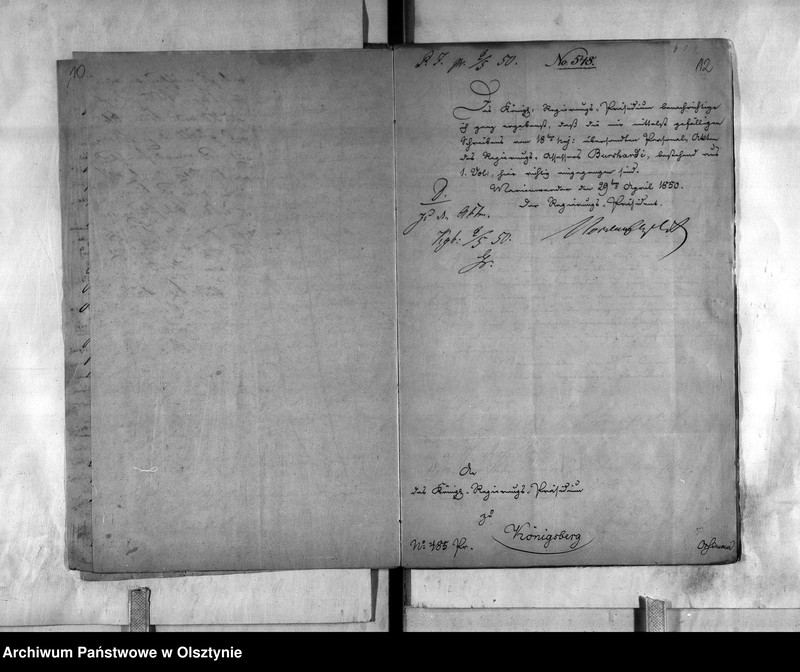 10.
pr. 9/5 50.
No. 545.
12
Das Königl. Regierungs-Präsidium benachrichtige
ich ganz ergebenst, daß die mir mittelst gefälligen
Schreibens vom 18ten huj: übersandten Personal-Akten
des Regierungs-Assessors Burchardi, bestehend aus
1. Vol:, hier richtig eingegangen sind.
Marienwerder den 29ten April 1850.
Der Regierungs-Präsident.
9/5 50.
An
das Königl. Regierungs-Präsidium
zu
Königsberg
No 485 Pr.
Archiwum Państwowe w Olsztynie